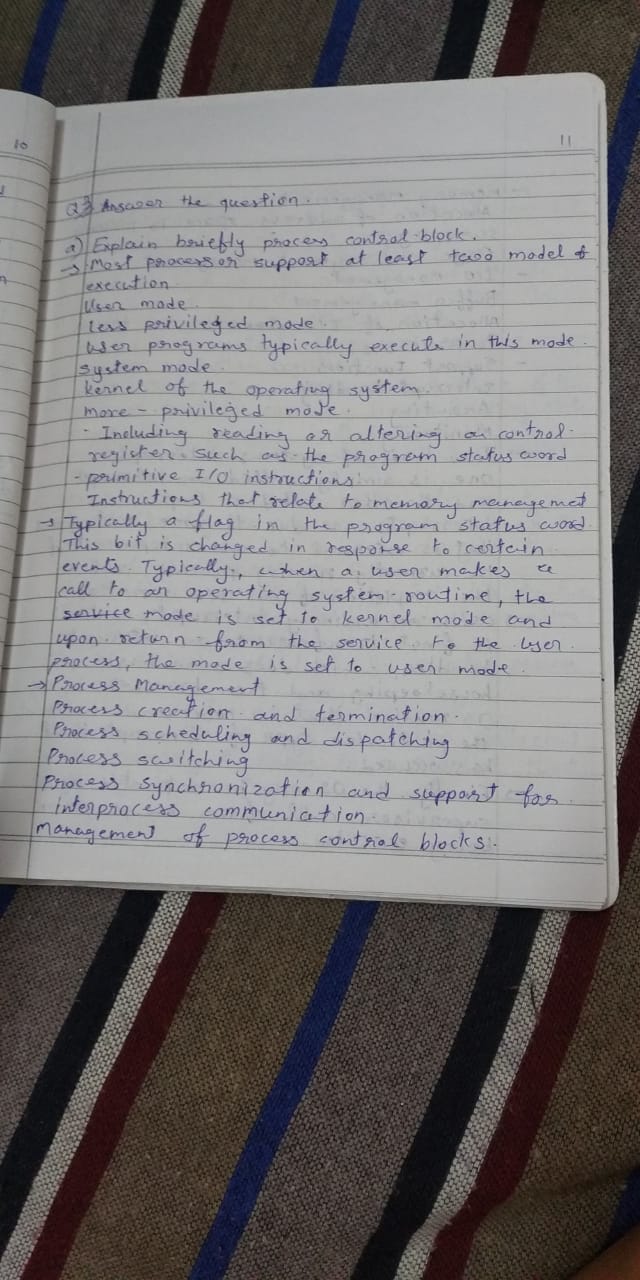 10
11
Q3 Answer the question.
a) Explain briefly process control block.
→ Most processor support at least two model of
execution
User mode.
less privileged mode
User programs typically execute in this mode.
System mode.
kernel of the operating system.
more - privileged mode.
- Including reading or altering a control
register such as the program status word
- primitive I/O instructions
Instructions that relate to memory managemet
→ Typically a flag in the program status word
This bit is changed in response to certain
events. Typically, when a user makes a
call to an operating system routine, the
service mode is set to kernel mode and
upon return from the service to the user
process, the mode is set to user mode.
→ Process Management
Process creation and termination.
Process scheduling and dispatching
Process switching
Process synchronization and support for
interprocess communication.
Management of process control blocks.